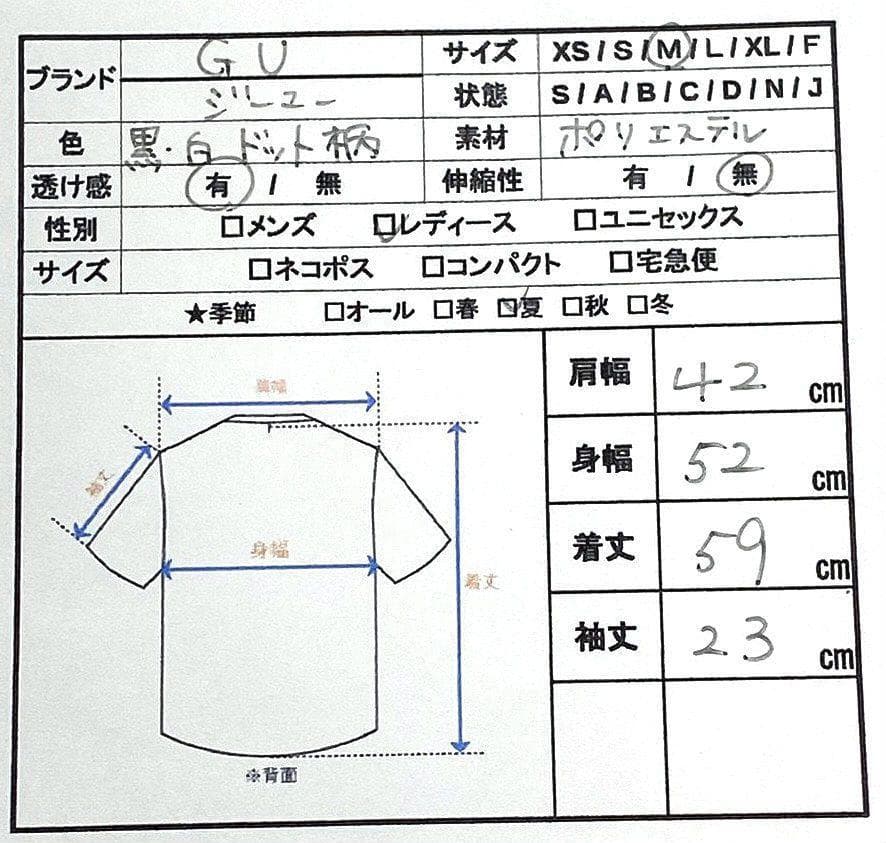 ブランド GU サイズ XS / S / M / L / XL / F
ジーユー 状態 S / A / B / C / D / N / J
色 黒・白 ドット柄 素材 ポリエステル
透け感 有 / 無 伸縮性 有 / 無
性別 □メンズ □レディース □ユニセックス
サイズ □ネコポス □コンパクト □宅急便
★季節 □オール □春 □夏 □秋 □冬
肩幅
袖丈
身幅
着丈
※背面
肩幅 42 cm
身幅 52 cm
着丈 59 cm
袖丈 23 cm